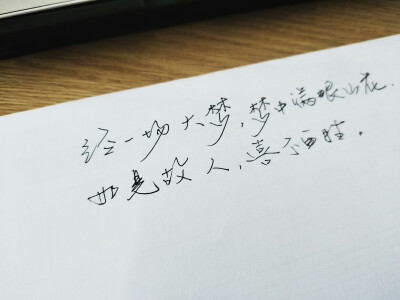 经一场大梦,梦中满眼山花.
如见故人,喜不自胜.